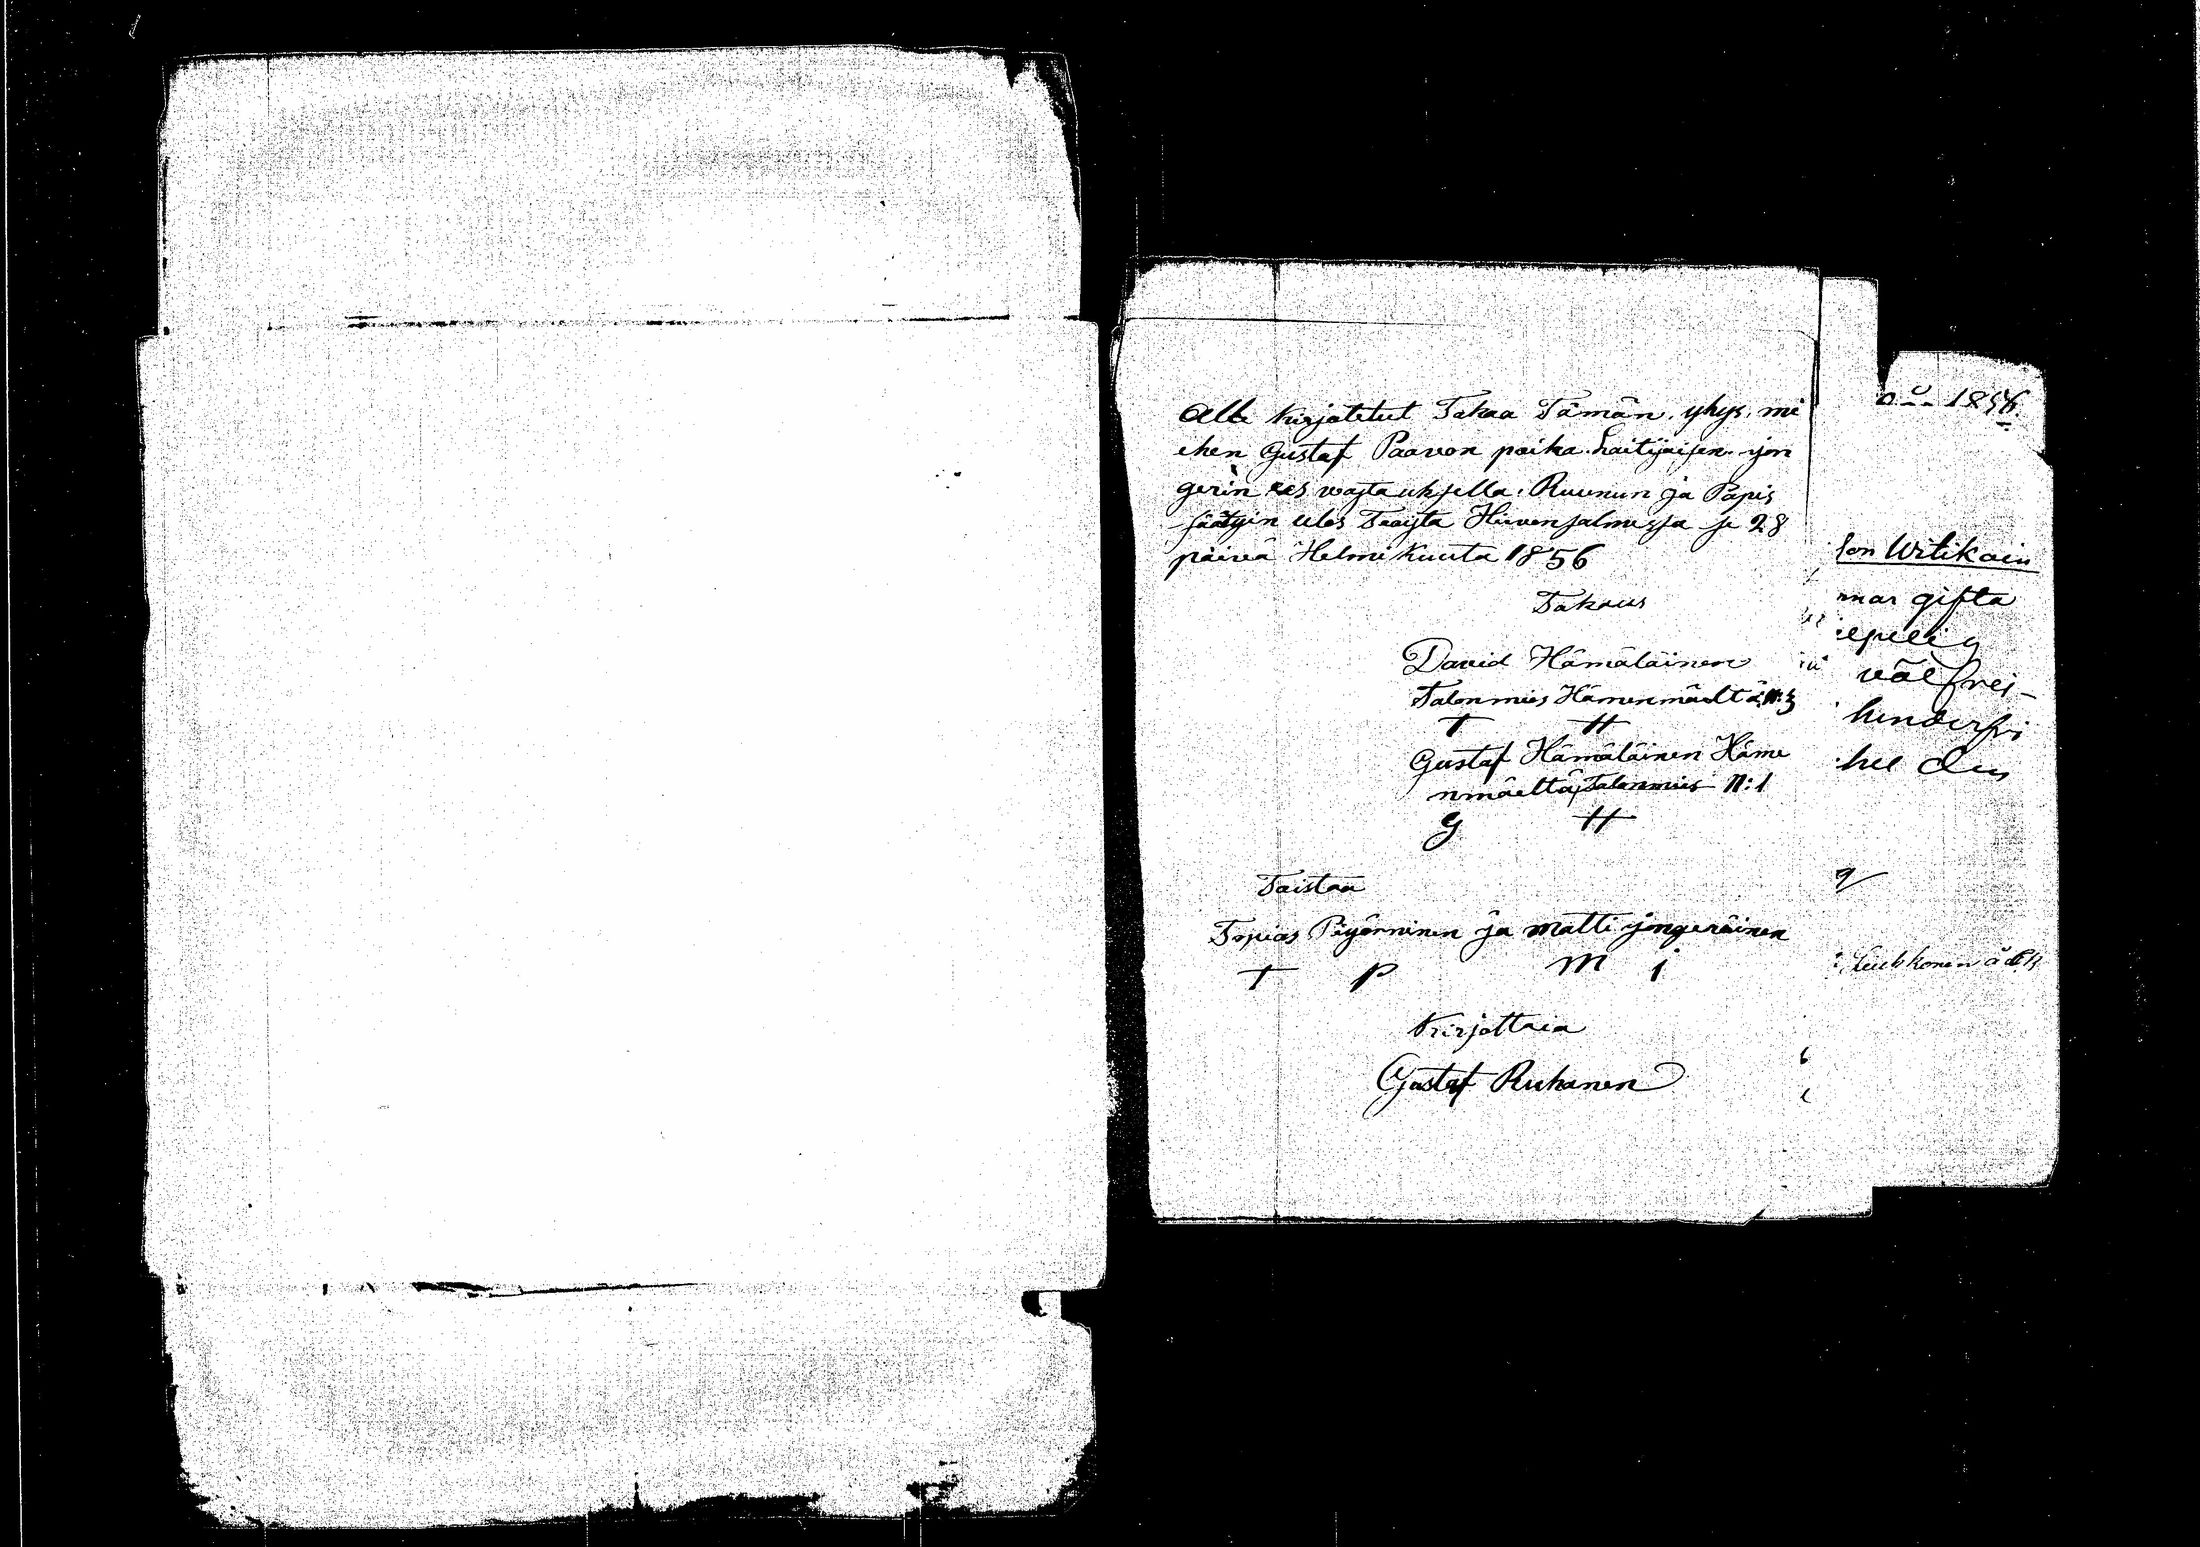 Alle kirjotetut Takaa Tämän yhys mi
ehen Gustaf Paavon poika Laitijaisen jon
gerin ees wastauksella Ruunun ja Papis
säätyin ulos Teoista Hirvensalmessa se 28
päivä Helmi Kuuta 1856
Takaus
David Hämäläinen
Talonmies Hämenmäeltä N:3
T H
Gustaf Hämäläinen Häme
nmäeltä Talonmies N:1
G H
Toistaa
Topias Piyörninen ja matti jongeräinen
T P m j
Kirjottaia
Gustaf Ruhanen
1856.
son Witikain
mar gifta
väl frej-
hinderfri